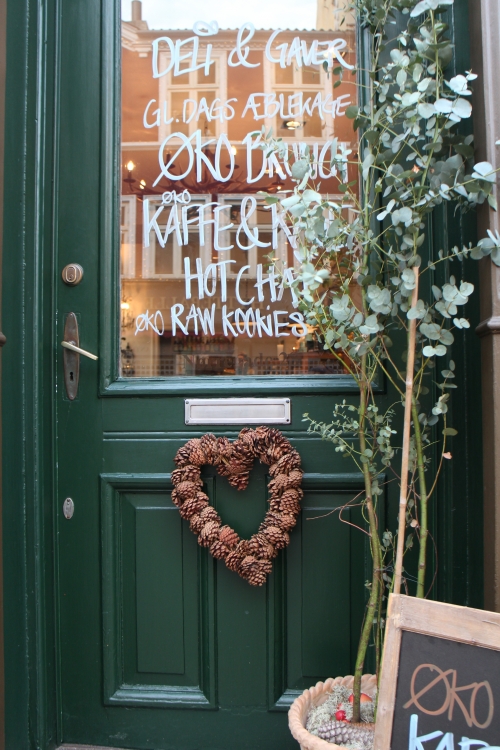 DELI & GAVER
GL. DAGS ÆBLEKAGE
ØKO BRUNCH
ØKO
KAFFE &
HOT CHA
ØKO RAW KOOKIES
ØKO
KAF